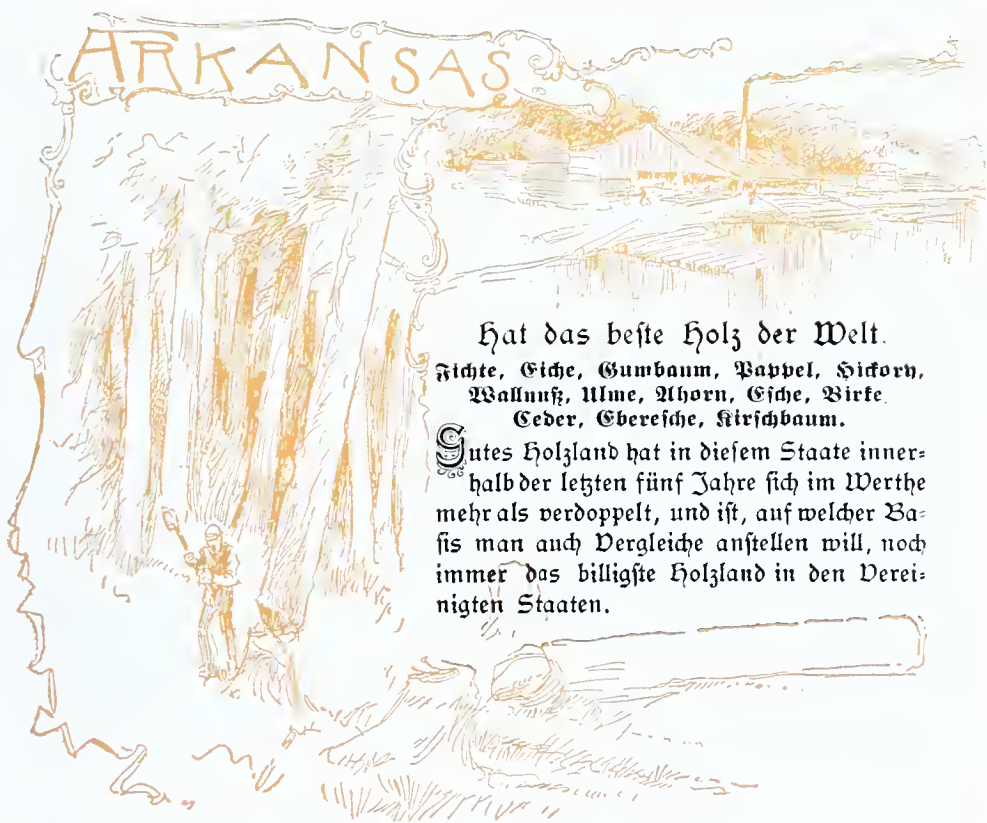 ARKANSAS
Hat das beste Holz der Welt.
Fichte, Eiche, Gumbaum, Pappel, Hickory,
Wallnuß, Ulme, Ahorn, Esche, Birke
Ceder, Eberesche, Kirschbaum.
Gutes Holzland hat in diesem Staate inner-
halb der letzten fünf Jahre sich im Werthe
mehr als verdoppelt, und ist, auf welcher Ba-
sis man auch Vergleiche anstellen will, noch
immer das billigste Holzland in den Verei-
nigten Staaten.